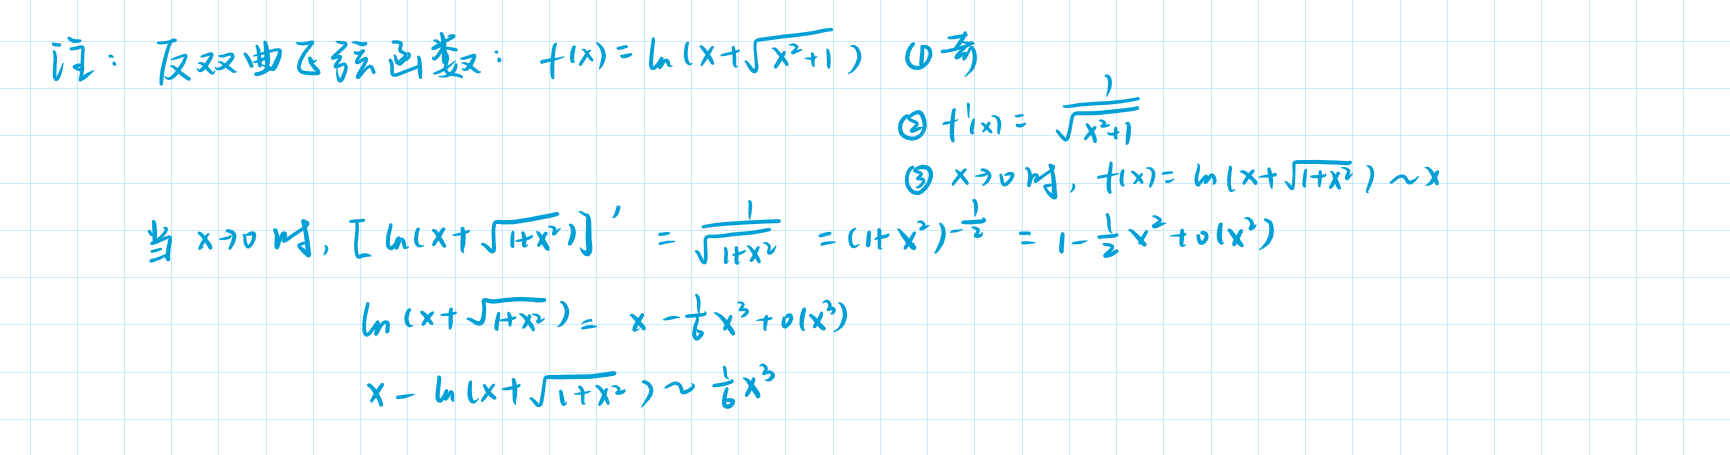 注：反双曲正弦函数：f(x)=ln(x+√(x²+1)) ①奇
②f'(x)=1/√(x²+1)
③x→0时，f(x)=ln(x+√(1+x²))~x
当x→0时，[ln(x+√(1+x²))]'=1/√(1+x²)=(1+x²)^(-1/2)=1-1/2x²+o(x²)
ln(x+√(1+x²))=x-1/6x³+o(x³)
x-ln(x+√(1+x²))~1/6x³